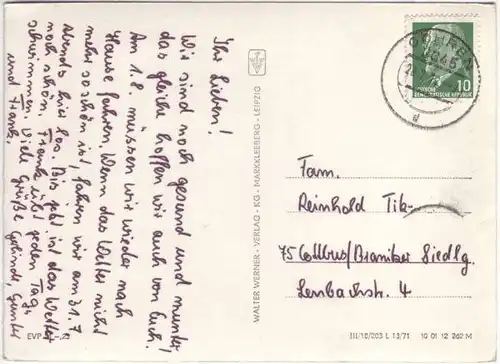 Ihr Lieben!
Wir sind noch gesund und munter
das gleiche hoffen wir auch von Euch!
Am 1.8. müssen wir wieder nach
Hause fahren. Wenn das Wetter nicht
mehr so schön ist, fahren wir am 31.7.
abends hier los. Bis jetzt ist das Wetter
noch schön. Frank übt jeden Tag
schwimmen. Viele Grüße Gerlinde, Günter
und Frank.
WALTER WERNER - VERLAG - KG - MARKKLEEBERG - LEIPZIG
GÖHREN
DEUTSCHE
DEMOKRATISCHE REPUBLIK
10
Fam.
Reinhold Tik-
75 Cottbus/Branitzer Siedlg.
Lenbachstr. 4
EVP
III/18/203 L 13/71 10 01 12 262 M